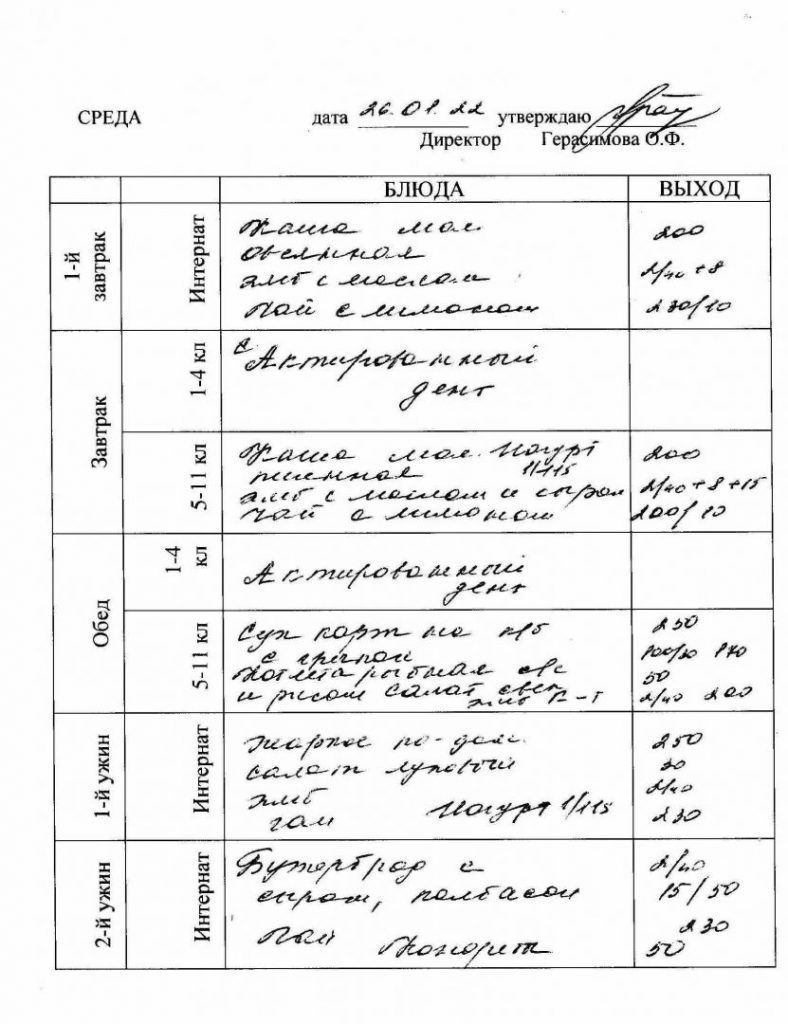 СРЕДА дата 26.01.22 утверждаю
Директор Герасимова О.Ф.
БЛЮДА ВЫХОД
1-й завтрак
Интернат
Каша мол 200
овсянная
хлеб с маслом 2/40 + 8
Чай с лимоном 230/10
Завтрак
1-4 кл
Актированный
день
5-11 кл
Каша мол. Йогурт 200
пшенная 1/115
хлеб с маслом и сыром 2/40 + 8 + 15
Чай с лимоном 200/10
Обед
1-4 кл
Актированный
день
5-11 кл
Суп карт на м/б 250
с гречкой 170
Котлета рыбная 50
и рисом салат свек 2/40 200
хлеб
1-й ужин
Интернат
Жаркое по-дом. 250
салат луковый
хлеб 2/40
чай Йогурт 1/115 230
2-й ужин
Интернат
Бутерброд с 2/40
сыром, колбасой 15/50
Чай 230
50